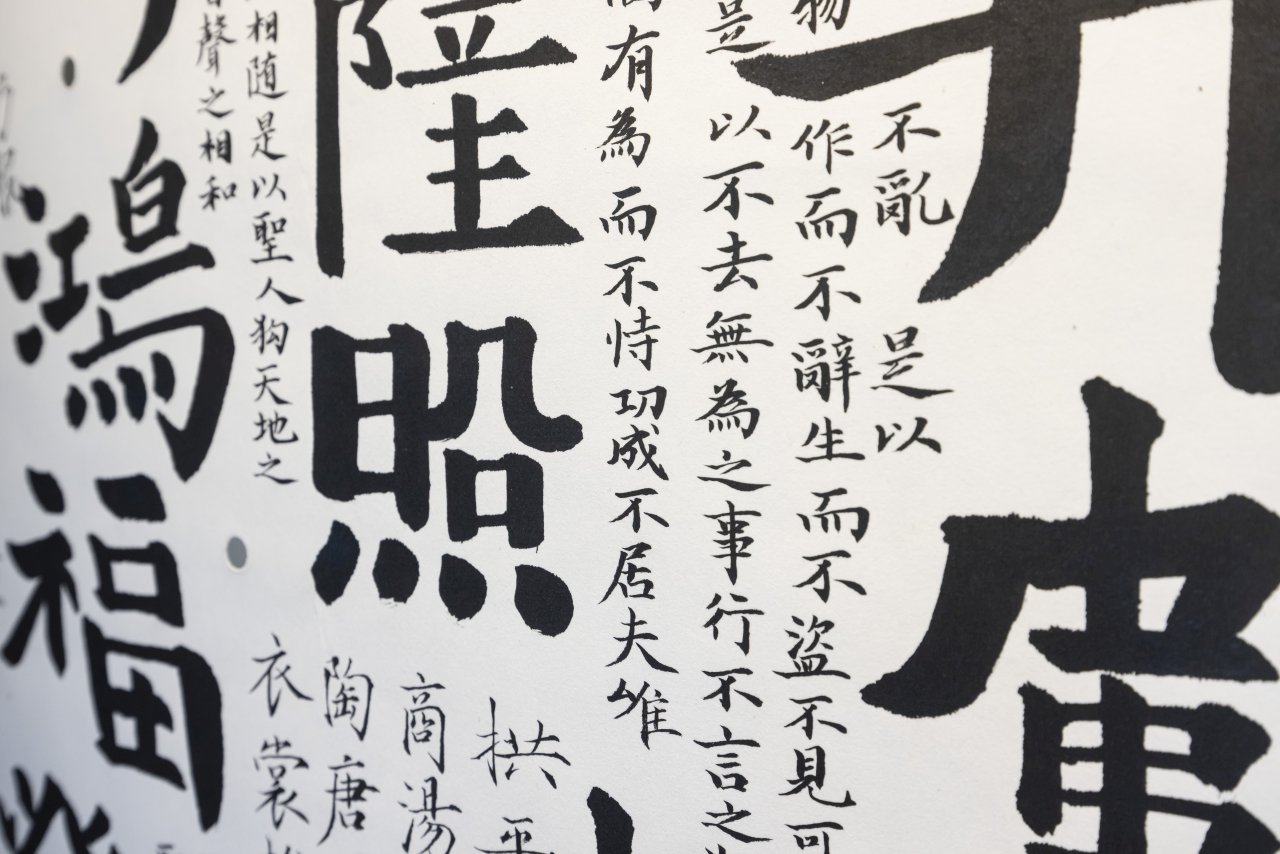 廣
不亂 是以
物作而不辭生而不盜不見可
是以不去無為之事行不言之
有為而不恃功成不居夫唯
陸照
拱平
商湯
陶唐
衣裳
相随是以聖人狗天地之
聲之相和
鴻福